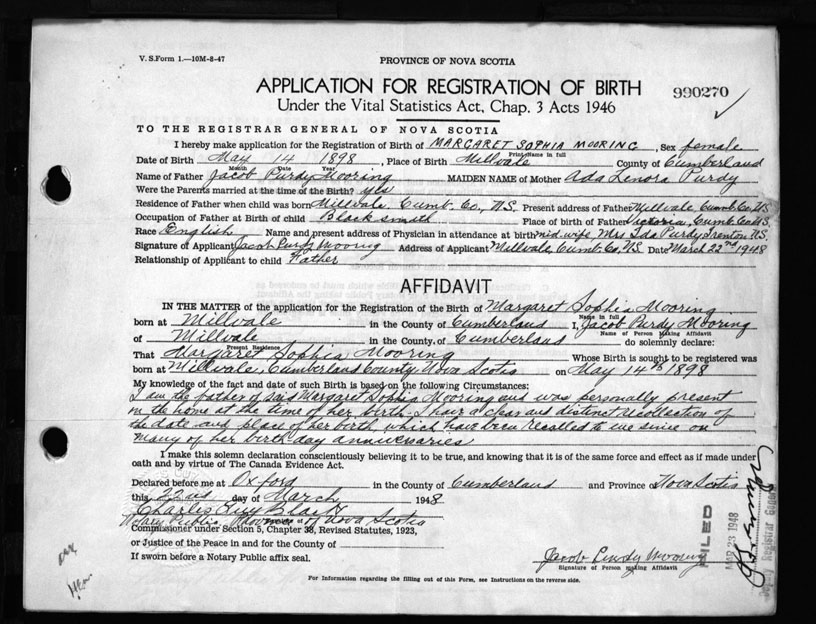 V. S. Form 1.—10M-8-47
PROVINCE OF NOVA SCOTIA
APPLICATION FOR REGISTRATION OF BIRTH
990270
Under the Vital Statistics Act, Chap. 3 Acts 1946
TO THE REGISTRAR GENERAL OF NOVA SCOTIA
I hereby make application for the Registration of Birth of MARGARET SOPHIA MOORING, Sex female
Print Name in full
Date of Birth May 14 1898, Place of Birth Millvale County of Cumberland
Month Date Year
Name of Father Jacob Purdy Mooring MAIDEN NAME of Mother Ada Lenora Purdy
Were the Parents married at the time of the Birth? yes
Residence of Father when child was born Millvale Cumb. Co., N.S. Present address of Father Millvale, Cumb. Co. N.S.
Occupation of Father at Birth of child Blacksmith Place of birth of Father Victoria, Cumb. Co. N.S.
Race English Name and present address of Physician in attendance at birth mid. wife, Mrs Ida Purdy Trenton N.S.
Signature of Applicant Jacob Purdy Mooring Address of Applicant Millvale, Cumb. Co., N.S. Date March 22nd 1948
Relationship of Applicant to child Father
AFFIDAVIT
IN THE MATTER of the application for the Registration of the Birth of Margaret Sophia Mooring
Name in full
born at Millvale in the County of Cumberland I, Jacob Purdy Mooring
Name of Person Making Affidavit
of Millvale in the County, of Cumberland do solemnly declare:
Present Residence
That Margaret Sophia Mooring Whose Birth is sought to be registered was
born at Millvale, Cumberland County, Nova Scotia on May 14th 1898
My knowledge of the fact and date of such Birth is based on the following Circumstances:
I am the father of said Margaret Sophia Mooring and was personally present
in the home at the time of her birth. I have a clear and distinct recollection of
the date and place of her birth which have been recalled to me since on
many of her birth day anniversaries
I make this solemn declaration conscientiously believing it to be true, and knowing that it is of the same force and effect as if made under
oath and by virtue of The Canada Evidence Act.
Declared before me at Oxford in the County of Cumberland and Province of Nova Scotia
this 22nd day of March 1948
Charles Guy Black
Notary Public, Province of Nova Scotia
Commissioner under Section 5, Chapter 38, Revised Statutes, 1923,
or Justice of the Peace in and for the County of
If sworn before a Notary Public affix seal.
Jacob Purdy Mooring
Signature of Person making Affidavit
For Information regarding the filling out of this Form, see Instructions on the reverse side.
FILED
MAR 23 1948
Deputy Registrar General